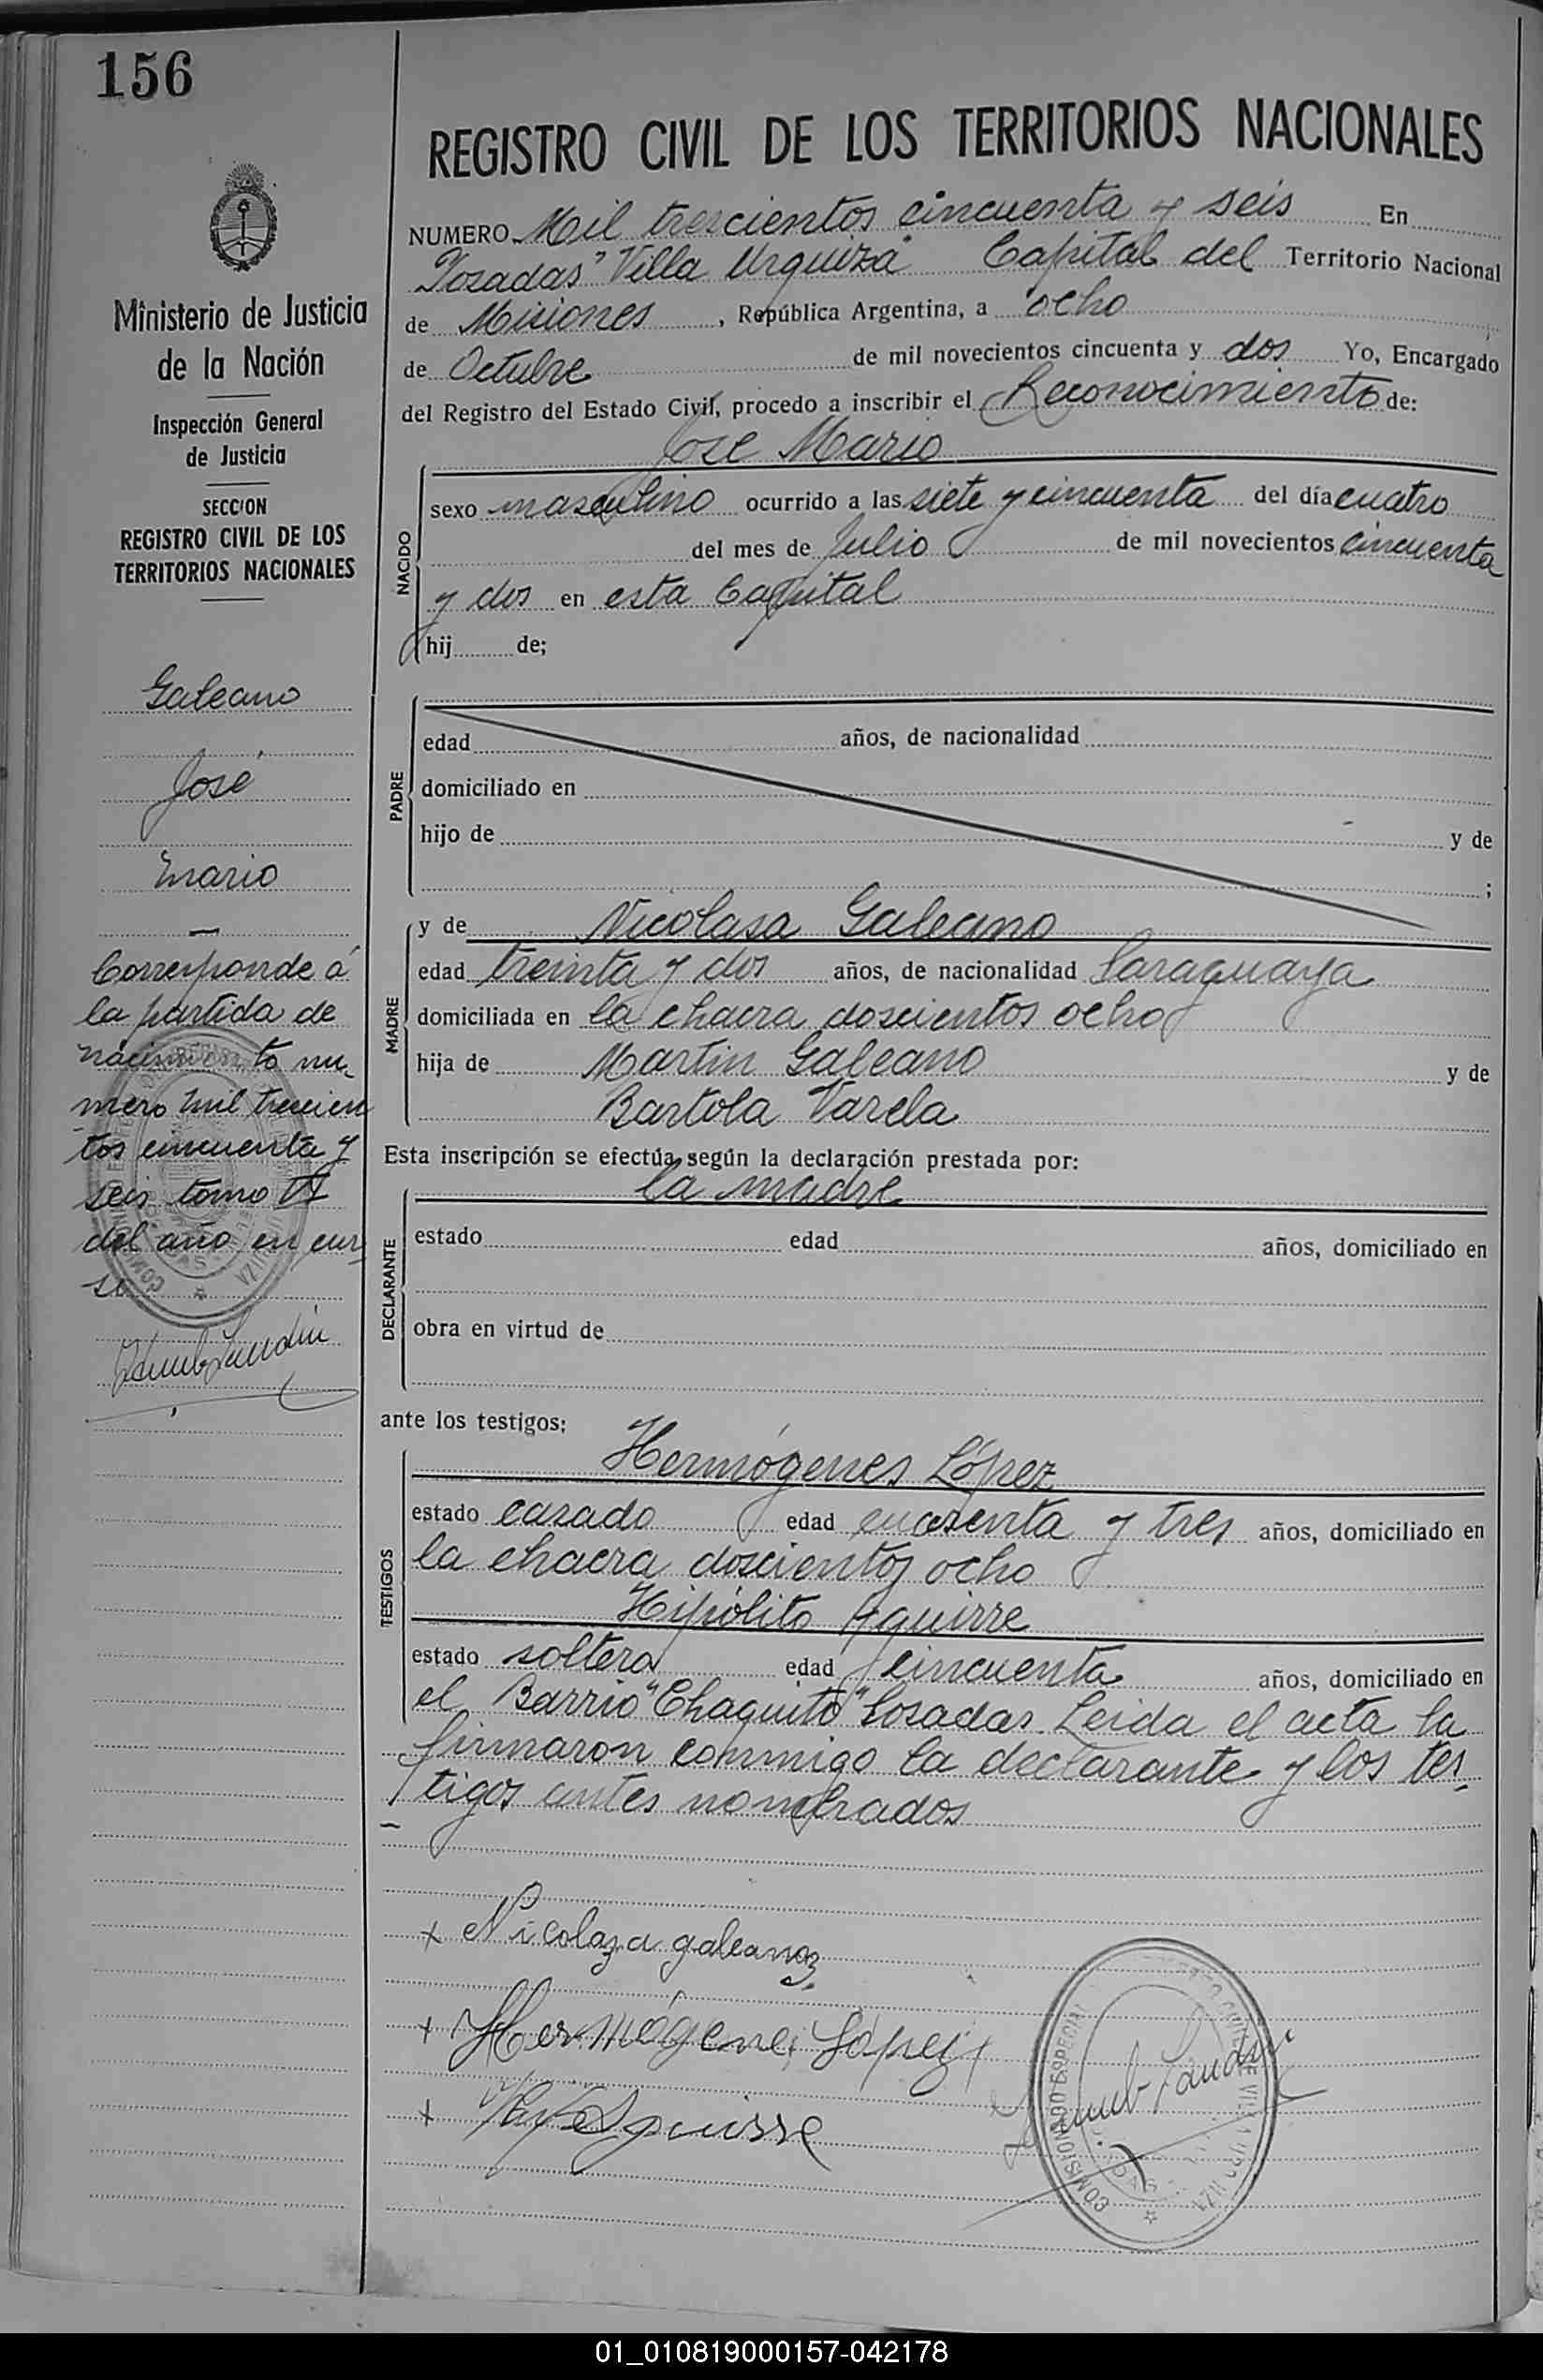 156
REGISTRO CIVIL DE LOS TERRITORIOS NACIONALES
NUMERO Mil trescientos cincuenta y seis En
Posadas "Villa Urquiza" Capital del Territorio Nacional
de Misiones, República Argentina, a ocho
de Octubre de mil novecientos cincuenta y dos Yo, Encargado
del Registro del Estado Civil, procedo a inscribir el Reconocimiento de:
Jose Mario
NACIDO
sexo masculino ocurrido a las siete y cincuenta del día cuatro
del mes de Julio de mil novecientos cincuenta
y dos en esta Capital
hij de;
PADRE
edad años, de nacionalidad
domiciliado en
hijo de y de
;
MADRE
y de Nicolasa Galeano
edad treinta y dos años, de nacionalidad Paraguaya
domiciliada en la chacra doscientos ocho
hija de Martin Galeano y de
Bartola Varela
Esta inscripción se efectúa según la declaración prestada por:
la madre
DECLARANTE
estado edad años, domiciliado en
obra en virtud de
ante los testigos:
Hermógenes López
TESTIGOS
estado casado edad cuarenta y tres años, domiciliado en
la chacra doscientos ocho
Hipólito Aguirre
estado soltero edad cincuenta años, domiciliado en
el Barrio "Chaquito" Posadas. Leida el acta la
firmaron conmigo la declarante y los tes-
tigos antes nombrados
+ Nicolaza galeano
+ Hermógenes López
+ Aguirre
COMISIONADO ESPECIAL
Ministerio de Justicia
de la Nación
Inspección General
de Justicia
SECCION
REGISTRO CIVIL DE LOS
TERRITORIOS NACIONALES
Galeano
José
Mario
Corresponde á
la partida de
nacimiento nu-
mero mil trescien
tos cincuenta y
seis tomo
del año en cur-
so
01_010819000157-042178